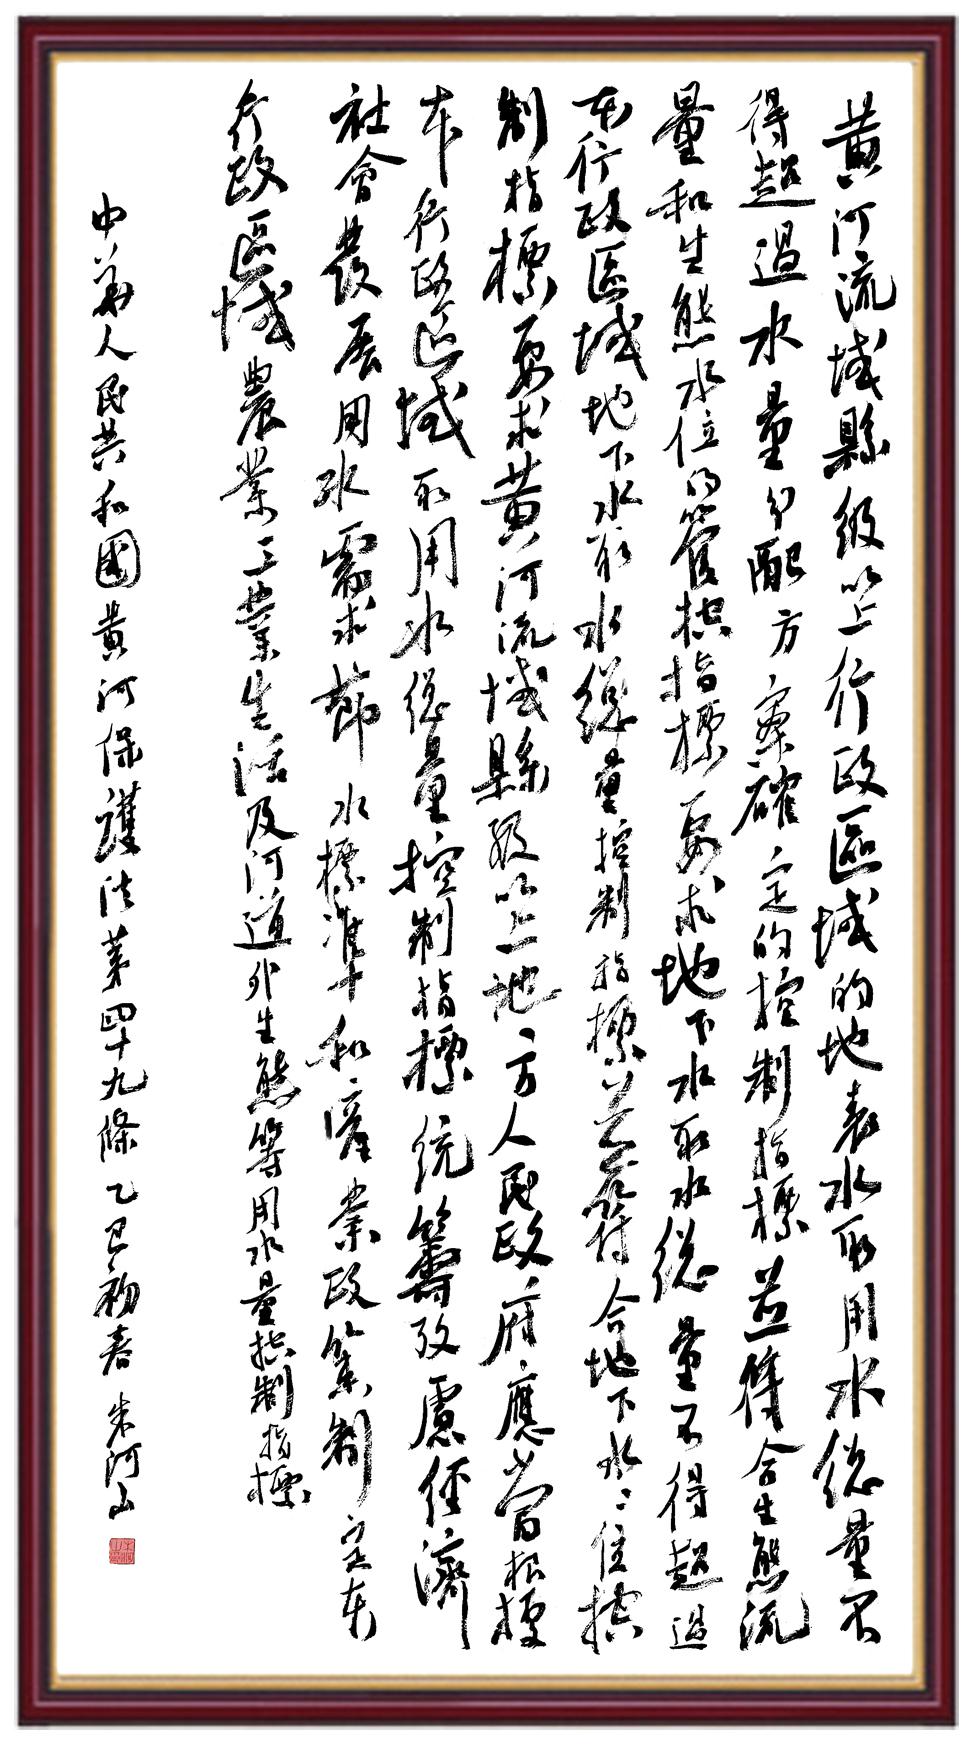 黃河流域縣級以上行政區域的地表水取用水總量不
得超過水量分配方案確定的控制指標並符合生態流
量和生態水位的管控指標要求地下水取水總量不得超過
本行政區域地下水取水總量控制指標並符合地下水水位控
制指標要求黃河流域縣級以上地方人民政府應當根據
本行政區域取用水總量控制指標統籌考慮經濟
社會發展用水需求節水標準和產業政策制定本
行政區域農業工業生活及河道外生態等用水量控制指標
中華人民共和國黃河保護法第四十九條乙巳初春朱河山